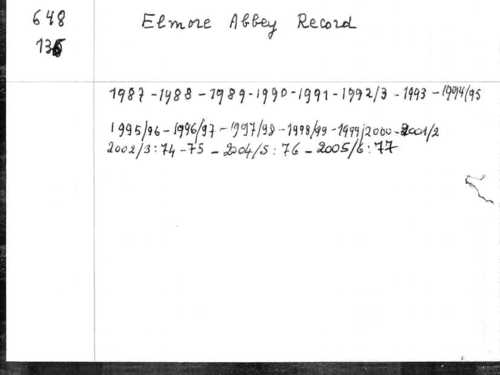 648 Elmore Abbey Record
136
1987 - 1988 - 1989 - 1990 - 1991 - 1992/3 - 1993 - 1994/95
1995/96 - 1996/97 - 1997/98 - 1998/99 - 1999/2000 - 2001/2
2002/3 : 74 - 75 - 2004/5 : 76 - 2005/6 : 77